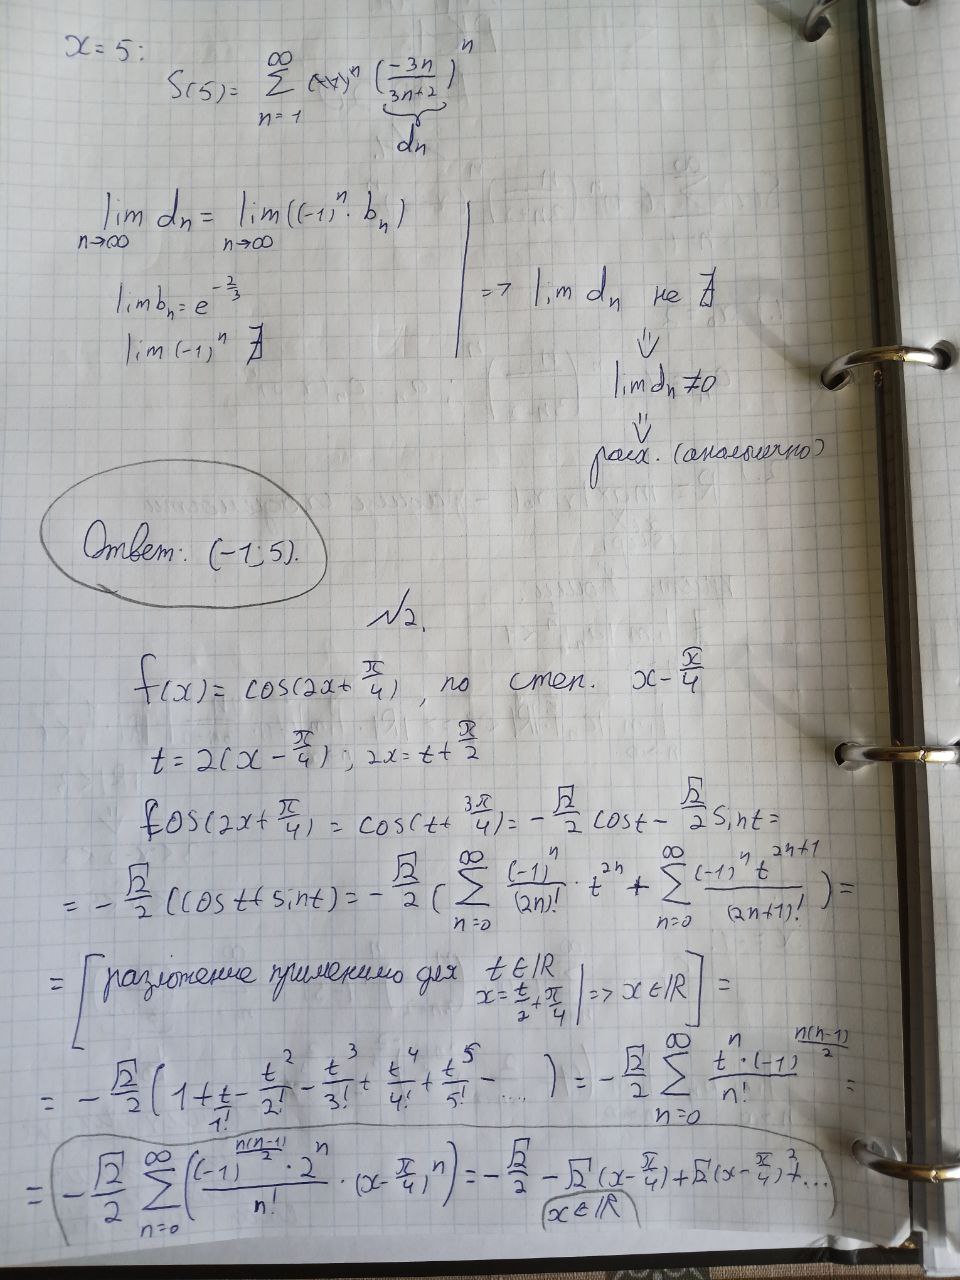 x = 5:
S(5) = ∑_{n=1}^{∞} (-3n/(3n+2))^n
d_n
lim_{n→∞} d_n = lim_{n→∞} ((-1)^n · b_n)
lim b_n = e^{-2/3}
lim (-1)^n ∄
=> lim d_n не ∄
⇓
lim d_n ≠ 0
⇓
расх. (аналогично)
Ответ: (-1; 5).
№2.
f(x) = cos(2x + π/4), по степ. x - π/4
t = 2(x - π/4); 2x = t + π/2
cos(2x + π/4) = cos(t + 3π/4) = -√2/2 cos t - √2/2 sin t =
= -√2/2 (cos t + sin t) = -√2/2 (∑_{n=0}^{∞} (-1)^n/(2n)! · t^{2n} + ∑_{n=0}^{∞} (-1)^n t^{2n+1}/(2n+1)!) =
= [разложение применимо для t ∈ ℝ x = t/2 + π/4 | => x ∈ ℝ] =
= -√2/2 (1 + t/1! - t^2/2! - t^3/3! + t^4/4! + t^5/5! - ...) = -√2/2 ∑_{n=0}^{∞} t^n · (-1)^{n(n-1)/2}/n! =
= -√2/2 ∑_{n=0}^{∞} ((-1)^{n(n-1)/2} · 2^n/n! · (x - π/4)^n) = -√2/2 - √2(x - π/4) + √2(x - π/4)^2 + ...
x ∈ ℝ